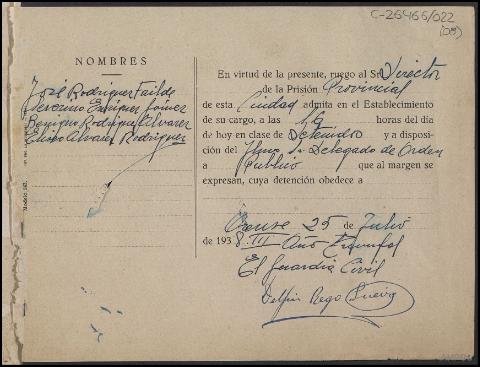 C-26466/022
(09)
NOMBRES
José Rodriguez Failde
Severino Enriquez Gomez
Benigno Rodriguez Alvarez
Eliseo Alvarez Rodriguez
En virtud de la presente, ruego al Sr. Director
de la Prisión Provincial
de esta Ciudad admita en el Establecimiento
de su cargo, a las horas del día
de hoy en clase de Detenidos y a disposi-
ción del Ilmo. Sr. Delegado de Orden
a Publico que al margen se
expresan, cuya detención obedece a
Orense 25 de Julio
de 1938. III Año Triunfal
El Guardia Civil
Delfin Rego